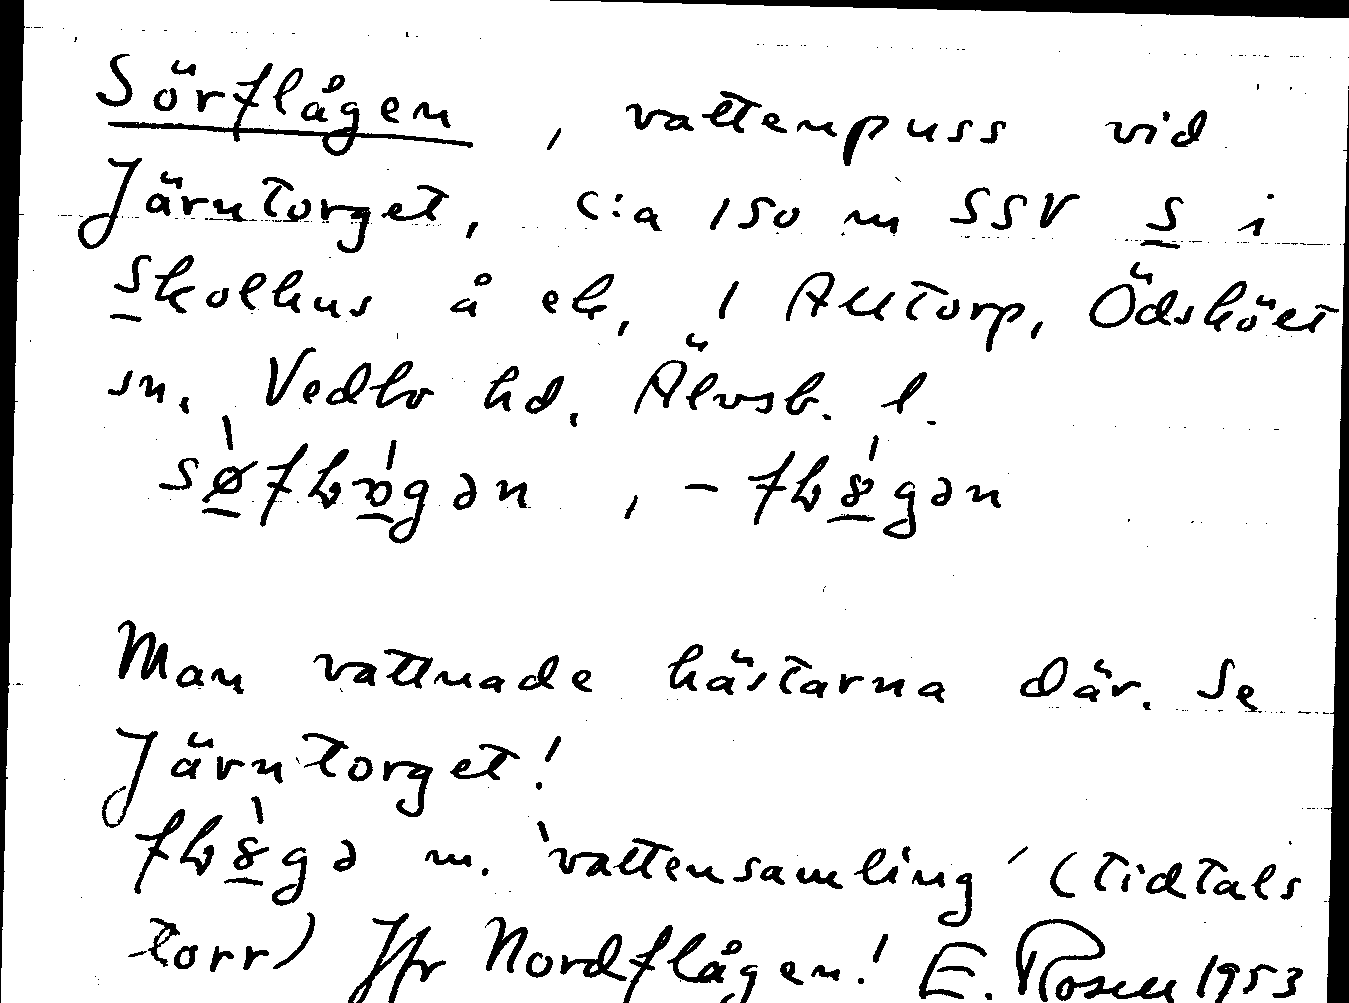 Sörflågen, vattenpuss vid
Järntorget, c:a 150 m SSV S i
Skolhus å ek, i Alltorp, Ödsköets
sn. Vedbo hd. Älvsb. l.
Man vattnade hästarna där. Se
Järntorget!
m. 'vattensamling' (tidtals
torr) Jfr Nordflågen! E. Rosell 1953